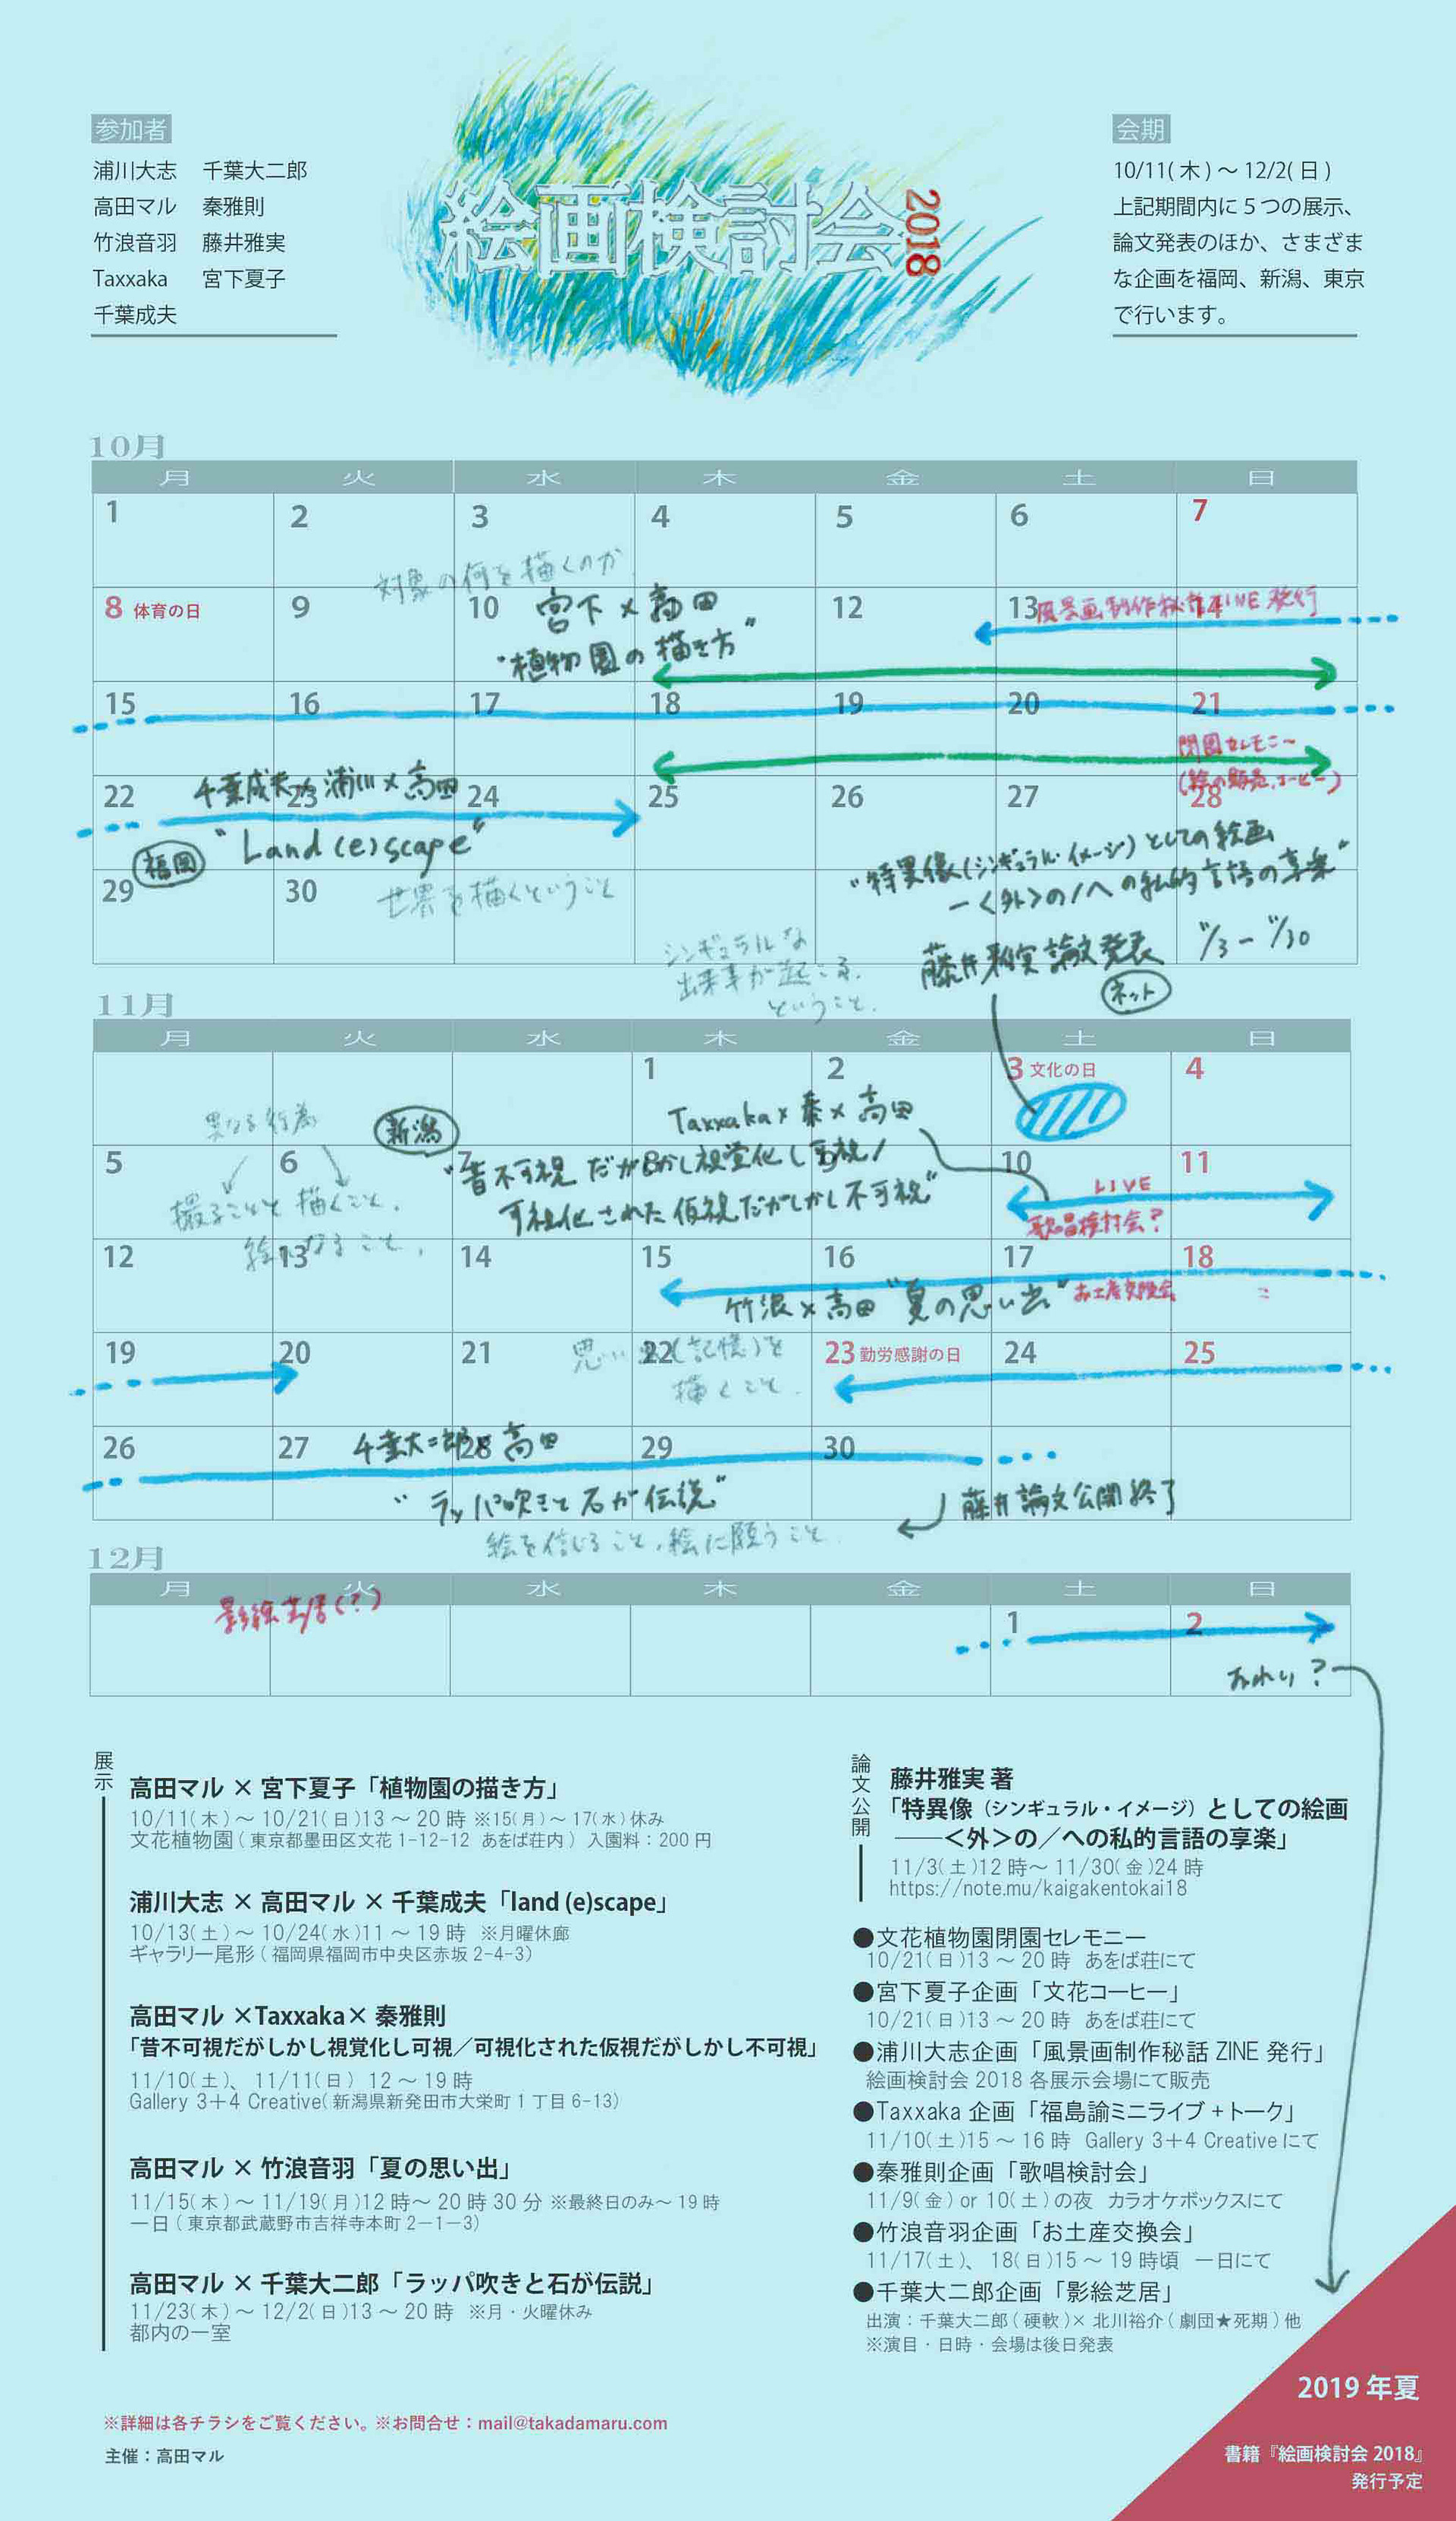 参加者
浦川大志　千葉大二郎
高田マル　秦雅則
竹浪音羽　藤井雅実
Taxxaka　宮下夏子
千葉成夫
絵画検討会2018
会期
10/11(木)～12/2(日)
上記期間内に5つの展示、
論文発表のほか、さまざま
な企画を福岡、新潟、東京
で行います。
10月
月 火 水 木 金 土 日
1 2 3 4 5 6 7
対象の何を描くのか.
8 体育の日 9 10 12 13 14
風景画制作秘話ZINE発行
宮下×高田
"植物園の描き方"
15 16 17 18 19 20 21
閉園セレモニー
(絵の販売、コーヒー)
22 23 24 25 26 27 28
千葉成夫×浦川×高田
福岡 "Land(e)scape"
"特異像(シンギュラル・イメージ)としての絵画
ー<外>の/への私的言語の享楽"
29 30
世界を描くということ
藤井雅実論文発表 11/3-11/30
ネット
シンギュラルな
出来事が起こる.
ということ.
11月
月 火 水 木 金 土 日
1 2 3 文化の日 4
Taxxaka×秦×高田
異なる行為
新潟
5 6 7 8 9 10 11
"昔不可視だがしかし視覚化し可視/
可視化された仮視だがしかし不可視"
LIVE
歌唱検討会?
撮ることと描くこと.
絵になること,
12 13 14 15 16 17 18
竹浪×高田 "夏の思い出"
お土産交換会
19 20 21 22 23 勤労感謝の日 24 25
思い出(記憶)を
描くこと.
26 27 28 29 30
千葉大二郎×高田
"ラッパ吹きと石が伝説"
藤井論文公開終了
絵を信じること,絵に願うこと.
12月
月 火 水 木 金 土 日
影絵芝居(?)
1 2
おわり?
展示
高田マル × 宮下夏子「植物園の描き方」
10/11(木)～10/21(日)13～20時 ※15(月)～17(水)休み
文花植物園(東京都墨田区文花1-12-12 あをば荘内) 入園料：200円
浦川大志 × 高田マル × 千葉成夫「land (e)scape」
10/13(土)～10/24(水)11～19時 ※月曜休廊
ギャラリー尾形(福岡県福岡市中央区赤坂2-4-3)
高田マル ×Taxxaka× 秦雅則
「昔不可視だがしかし視覚化し可視／可視化された仮視だがしかし不可視」
11/10(土)、11/11(日) 12～19時
Gallery 3＋4 Creative(新潟県新発田市大栄町1丁目6-13)
高田マル × 竹浪音羽「夏の思い出」
11/15(木)～11/19(月)12時～20時30分 ※最終日のみ～19時
一日(東京都武蔵野市吉祥寺本町2－1－3)
高田マル × 千葉大二郎「ラッパ吹きと石が伝説」
11/23(木)～12/2(日)13～20時 ※月・火曜休み
都内の一室
論文公開
藤井雅実 著
「特異像（シンギュラル・イメージ）としての絵画
――＜外＞の／への私的言語の享楽」
11/3(土)12時～11/30(金)24時
https://note.mu/kaigakentokai18
●文花植物園閉園セレモニー
10/21(日)13～20時 あをば荘にて
●宮下夏子企画「文花コーヒー」
10/21(日)13～20時 あをば荘にて
●浦川大志企画「風景画制作秘話ZINE発行」
絵画検討会2018各展示会場にて販売
●Taxxaka企画「福島諭ミニライブ+トーク」
11/10(土)15～16時 Gallery 3＋4 Creativeにて
●秦雅則企画「歌唱検討会」
11/9(金)or 10(土)の夜 カラオケボックスにて
●竹浪音羽企画「お土産交換会」
11/17(土)、18(日)15～19時頃 一日にて
●千葉大二郎企画「影絵芝居」
出演：千葉大二郎(硬軟)× 北川裕介(劇団★死期)他
※演目・日時・会場は後日発表
※詳細は各チラシをご覧ください。※お問合せ：mail@takadamaru.com
主催：高田マル
2019年夏
書籍『絵画検討会2018』
発行予定